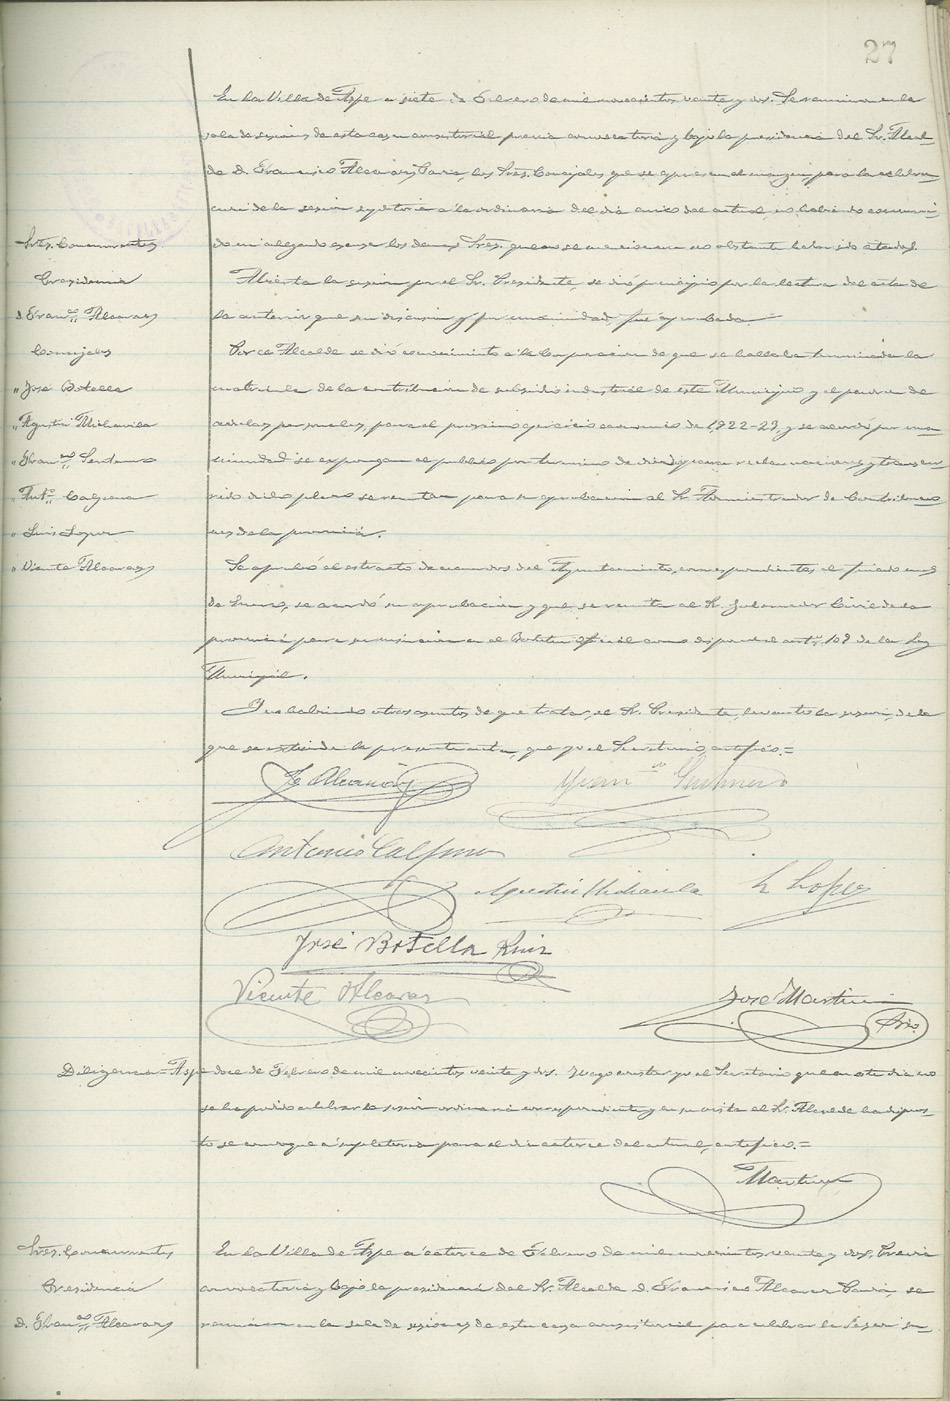 27
En la Villa de Aspe a siete de Febrero de mil novecientos veinte y dos. Se reunieron en la
sala de sesiones de esta casa consistorial previa convocatoria y bajo la presidencia del Sr. Alcal-
de D. Francisco Alcaraz Pavia, los Sres. Concejales que se expresan al margen, para la celebra-
ción de la sesión supletoria a la ordinaria del día cinco del actual, no habiendo concurri-
do ni alegado excusa los demás Sres. que no se mencionan no obstante haber sido citados.
Sres. Concurrentes
Presidencia
D. Franco Alcaraz
Concejales
" José Botella
" Agustín Mirambell
" Franco
" Anto Calpena
" Luis Lopez
" Vicente Alcaraz
Abierta la sesión por el Sr. Presidente, se dió principio por la lectura del acta de
la anterior que sin discusión y por unanimidad fue aprobada.
Por el Alcalde se dió conocimiento a la Corporación de que se hallaba terminada la
matrícula de la contribución de subsidio industrial de este Municipio y el padrón de
cédulas personales, para el próximo ejercicio economico de 1922-23, y se acordó por una-
nimidad se expongan al publico por termino de diez días para reclamaciones y transcu-
rrido dicho plazo se remitan para su aprobación al Sr. Administrador de Contribucio-
nes de la provincia.
Se aprobó el extracto de acuerdos del Ayuntamiento, correspondientes al pasado mes
de Enero, se acordó su aprobación y que se remita al Sr. Gobernador Civil de la
provincia para su inserción en el Boletin Oficial como dispone el artº. 109 de la Ley
Municipal.
Y no habiendo otros asuntos de que tratar, el Sr. Presidente, levantó la sesión, de la
que se extiende la presente acta, que yo el Secretario, certifico.=
F Alcaraz
Antonio Calpena
L Lopez
José Botella Ruiz
Vicente Alcaraz
José Martinez
Srio.
Diligencia=Aspe doce de Febrero de mil novecientos veinte y dos. Hago constar yo el Secretario que en este día no
se ha podido celebrar la sesión ordinaria correspondiente y en su vista el Sr. Alcalde ha dispues-
to se convoque a supletoria para el día catorce del actual, certifico.=
Martinez
Sres. Concurrentes
Presidencia
D. Franco Alcaraz
En la Villa de Aspe a catorce de Febrero de mil novecientos veinte y dos. Previa
convocatoria y bajo la presidencia del Sr. Alcalde D. Francisco Alcaraz Pavia, se
reunieron en la sala de sesiones de esta casa consistorial para celebrar la sesión su-